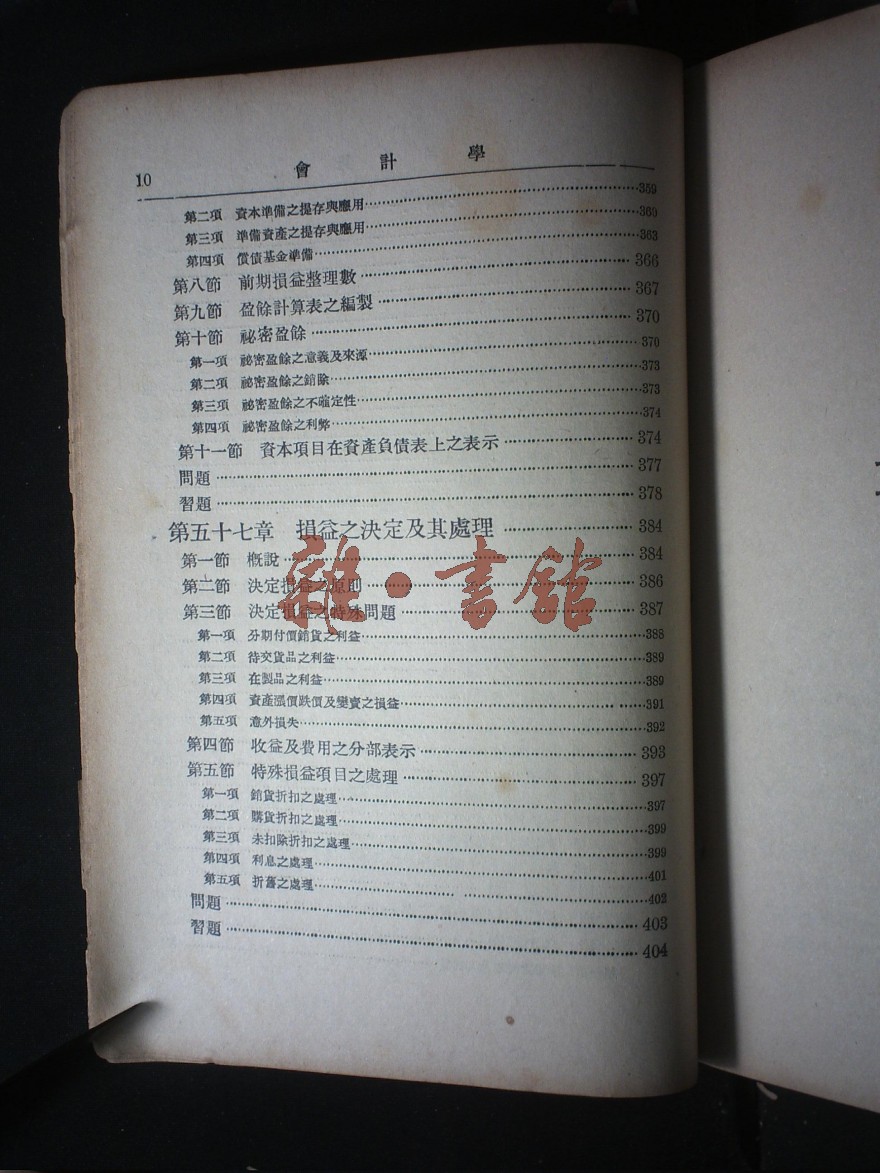 10 會計學
第二項 資本準備之提存與應用……359
第三項 準備資產之提存與應用……360
第四項 償債基金準備……363
第八節 前期損益整理數……366
第九節 盈餘計算表之編製……367
第十節 祕密盈餘……370
第一項 祕密盈餘之意義及來源……370
第二項 祕密盈餘之銷除……373
第三項 祕密盈餘之不確定性……373
第四項 祕密盈餘之利弊……374
第十一節 資本項目在資產負債表上之表示……374
問題……377
習題……378
第五十七章 損益之決定及其處理……384
第一節 概說……384
第二節 決定損益之原則……386
第三節 決定損益之特殊問題……387
第一項 分期付價銷貨之利益……388
第二項 待交貨品之利益……389
第三項 在製品之利益……389
第四項 資產漲價跌價及變賣之損益……391
第五項 意外損失……392
第四節 收益及費用之分部表示……393
第五節 特殊損益項目之處理……397
第一項 銷貨折扣之處理……397
第二項 購貨折扣之處理……399
第三項 未扣除折扣之處理……399
第四項 利息之處理……401
第五項 折舊之處理……402
問題……403
習題……404
雜·書館